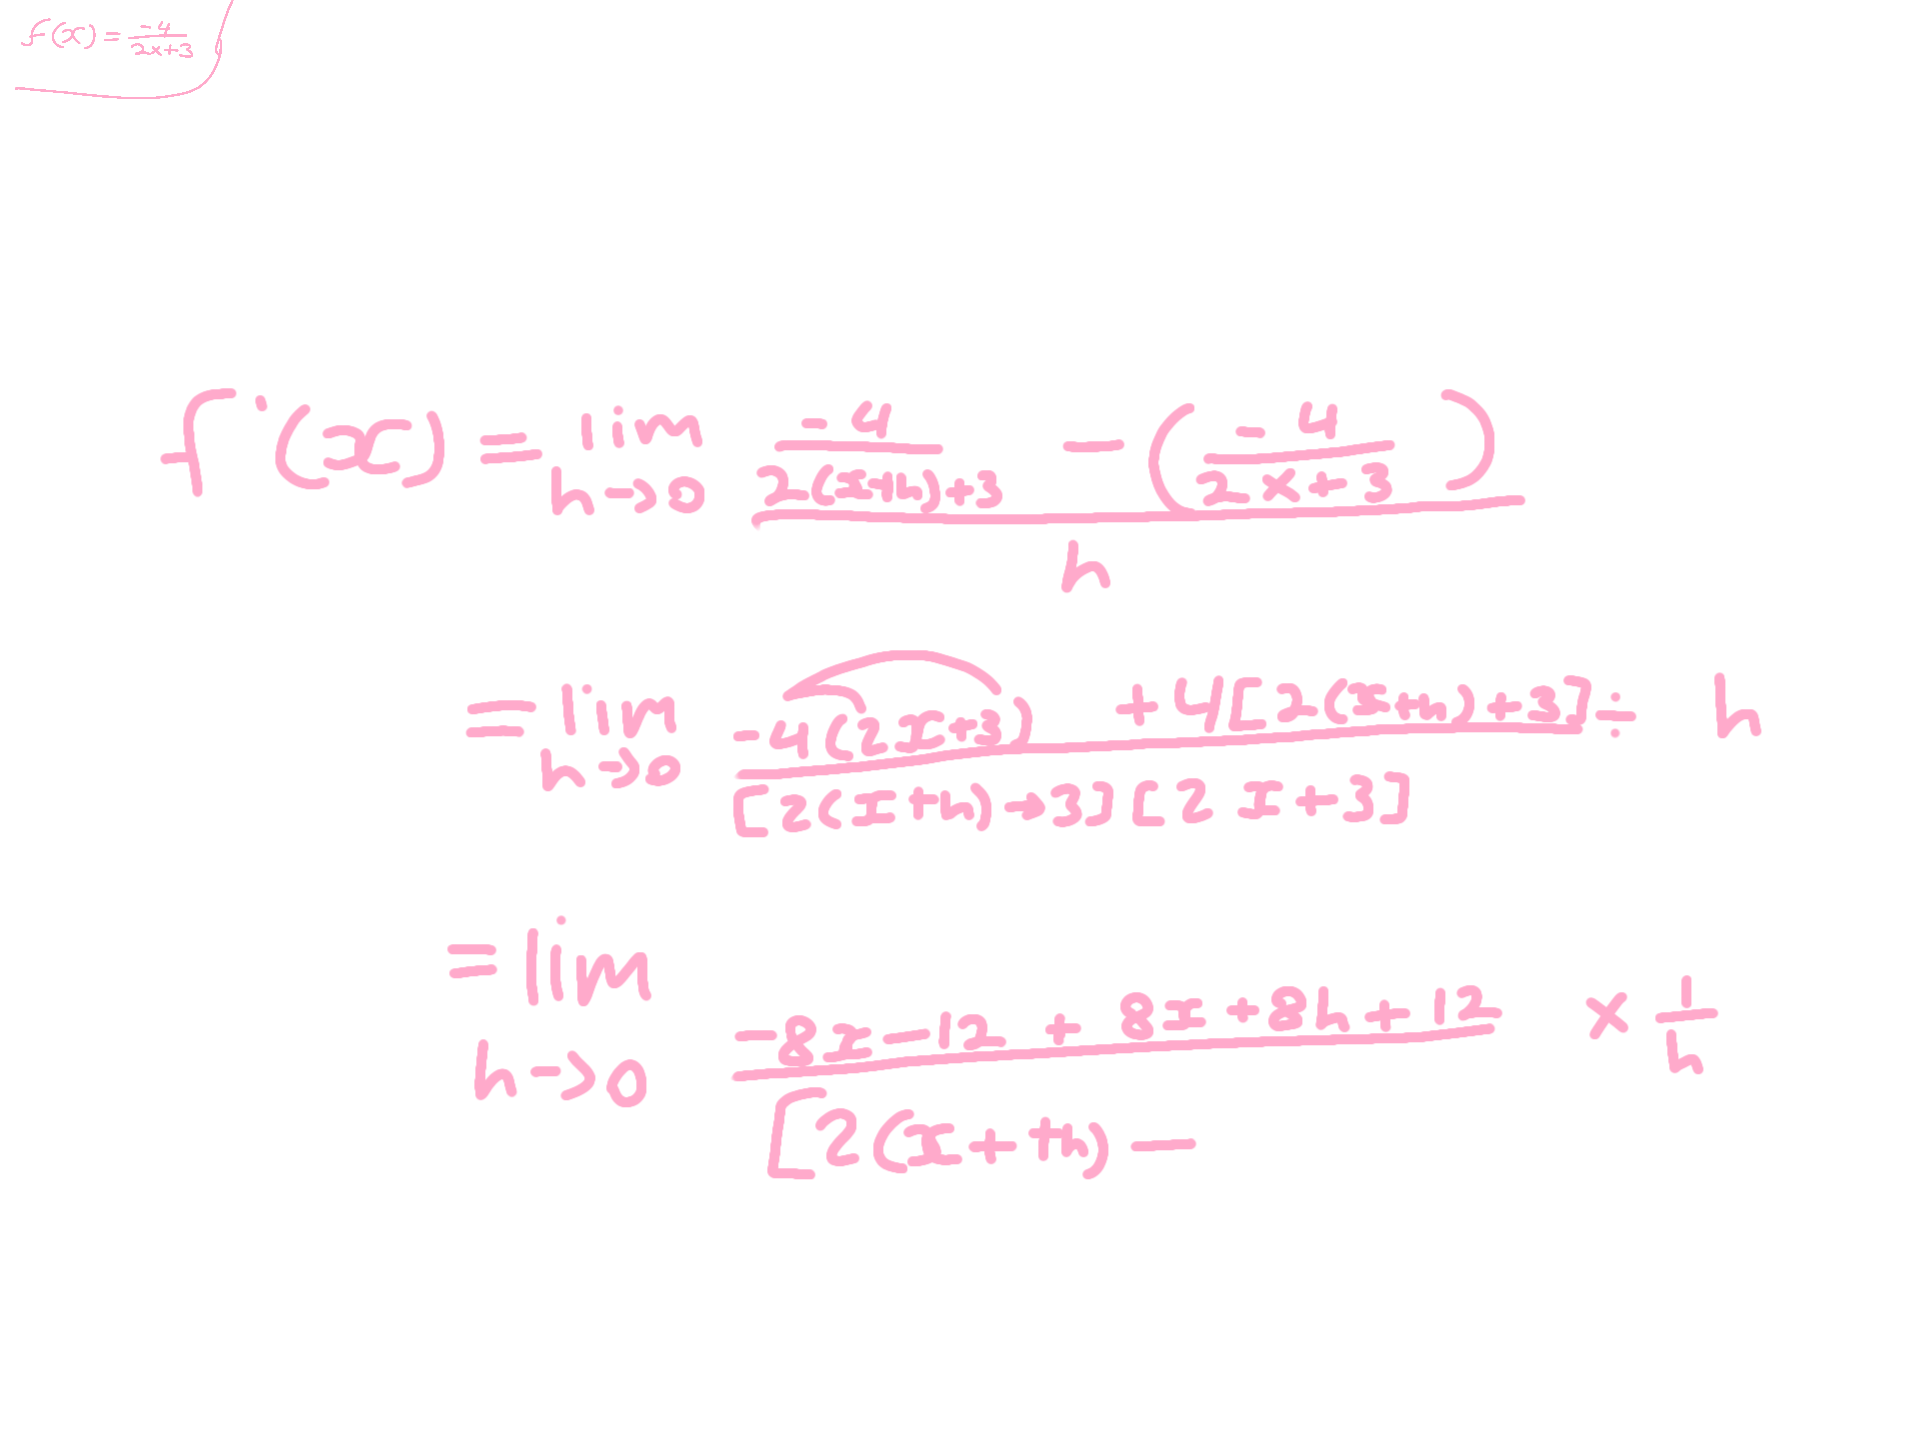 f(x) = -4/(2x+3)
f'(x) = lim h→0 (-4/(2(x+h)+3) - (-4/(2x+3)))/h
= lim h→0 (-4(2x+3) +4[2(x+h)+3])/([2(x+h)+3][2x+3]) ÷ h
= lim h→0 (-8x-12 + 8x+8h+12)/([2(x++h) -) × 1/h